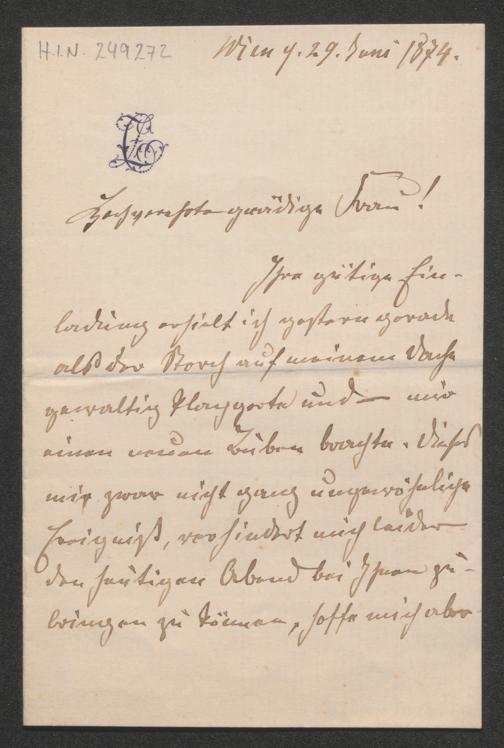 H.I.N. 249272
Wien d. 29. Juni 1874.
Hochverehrte gnädige Frau!
Ihre gütige Ein-
ladung erhielt ich gestern gerade
als der Storch auf meinem Dache
gewaltig klapperte und mir
einen neuen Buben brachte. Dieses
mir zwar nicht ganz ungewöhnliche
Ereigniß, verhindert mich leider
den heutigen Abend bei Ihnen zu-
bringen zu können, hoffe mich aber